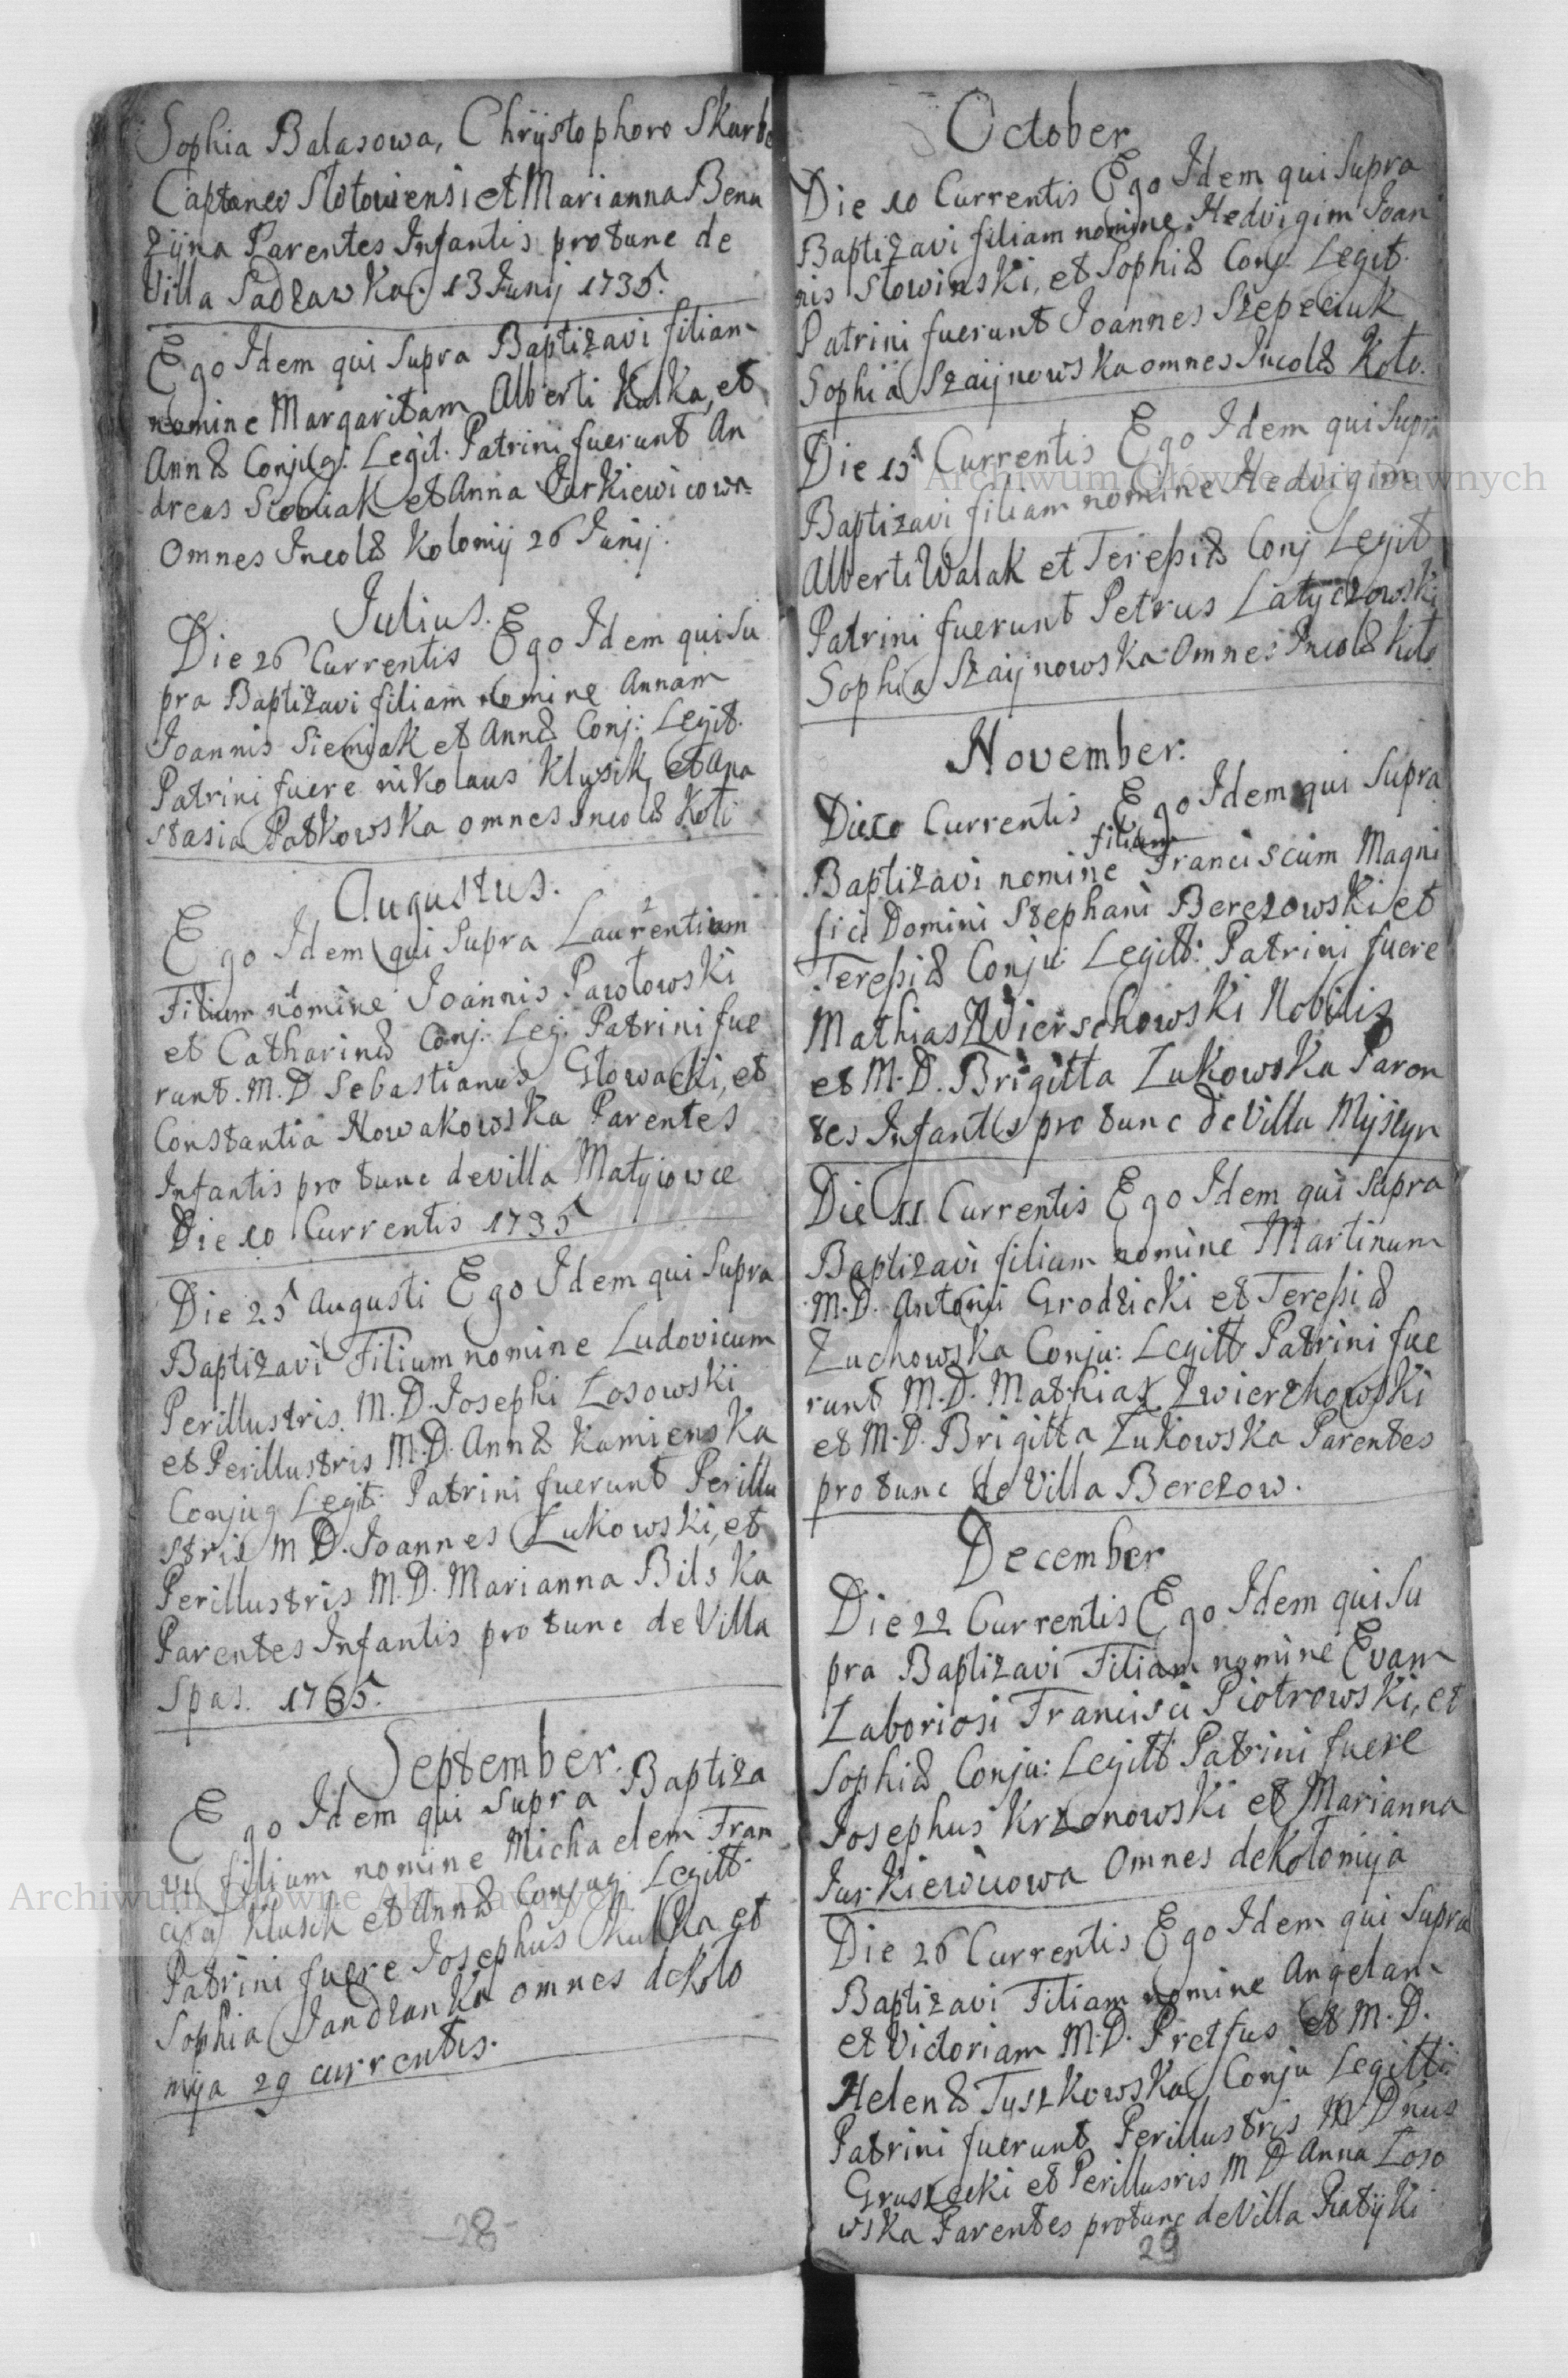 Sophia Balasowa, Chrÿstophoro Skarbe
Captaneo Slotoviensi et Marianna Benu
zÿna Parentes Infantis pro tunc de
Villa Sadzawka. 13 Junij 1735.
Ego Idem qui Supra Baptizavi filiam
nomine Margaritam Alberti Kulka, et
Annæ Conjug: Legit. Patrini fuerunt An
dreas et Anna Jurkiewicowa
Omnes Incolæ Kolomij 26 Junij.
Julius.
Die 26 Currentis Ego Idem qui Su
pra Baptizavi filiam nomine Annam
Joannis Siemiak et Annæ Conj: Legit.
Patrini fuere nikolaus Klysik, et Ana
stasia Patkowska omnes Incolæ Koli
Augustus.
Ego Idem qui Supra Laurentium
Filium nomine Joannis Pawlowski
et Catharinæ Conj: Leg: Patrini fue
runt. M. D Sebastianus Glowacki, et
Constantia Nowakowska Parentes
Infantis pro tunc de villa Matyiowce
Die 10 Currentis 1735
Die 25 Augusti Ego Idem qui Supra
Baptizavi Filium nomine Ludovicum
Perillustris. M. D. Josephi Łosowski
et Perillustris M. D. Annæ Kamienska
Conjug Legit: Patrini fuerunt Perillu
stris M D. Joannes Zukowski, et
Perillustris M. D. Marianna Bilska
Parentes Infantis pro tunc de Villa
Spas. 1735.
September.
Ego Idem qui Supra Baptiza
vi filium nomine Michaelem Fran
cisci Klusek et Annæ Conjug: Legitt.
Patrini fuere Josephus Kulka et
Sophia Jandzanka omnes de Kolo
mÿa 29 currentis.
28
October
Die 10 Currentis Ego Idem qui Supra
Baptizavi filiam nomine Hedvigim Joan
nis Slowinski, et Sophiæ Conj Legit.
Patrini fuerunt Joannes Szepeciuk
Sophia Szaijnowska omnes Incolæ Kolo.
Die 15 Currentis Ego Idem qui Supra
Baptizavi filiam nomine Hedvigim
Alberti Walak et Teresiæ Conj Legit
Patrini fuerunt Petrus Latyczowski
Sophia Szaijnowska Omnes Incolæ Kolo
November.
Die 10 Currentis Ego Idem qui Supra
filium
Baptizavi nomine Franciscum Magni
fici Domini Stephani Berezowski et
Teresiæ Conju: Legitt: Patrini fuere
Mathias Zwierschowski Nobilis
et M. D. Brigitta Zukowska Paren
tes Infantis pro tunc de Villa Myszyn
Die 11 Currentis Ego Idem qui Supra
Baptizavi filium nomine Martinum
M. D. Antonij Grodzicki et Teresiæ
Zuchowska Conju: Legitt Patrini fue
runt M. D. Mathias Zwierzhowski
et M. D. Brigitta Zukowska Parentes
pro tunc de Villa Berezow.
December
Die 22 Currentis Ego Idem qui Su
pra Baptizavi Filiam nomine Evam
Laboriosi Francisci Piotrowski, et
Sophiæ Conju: Legitt Patrini fuere
Josephus Krzonowski et Marianna
Jurkiewicowa Omnes de Kolomija
Die 26 Currentis Ego Idem qui Supra
Baptizavi Filiam nomine Angelam
et Victoriam M. D. Pretfus et M. D.
Helenæ Tuszkowska Conju Legitti:
Patrini fuerunt Perillustris M Dnus
Gruszecki et Perillusris M D Anna Łoso
wska Parentes protunc de Villa Piatÿki
29
Archiwum Główne Akt Dawnych
Archiwum Główne Akt Dawnych